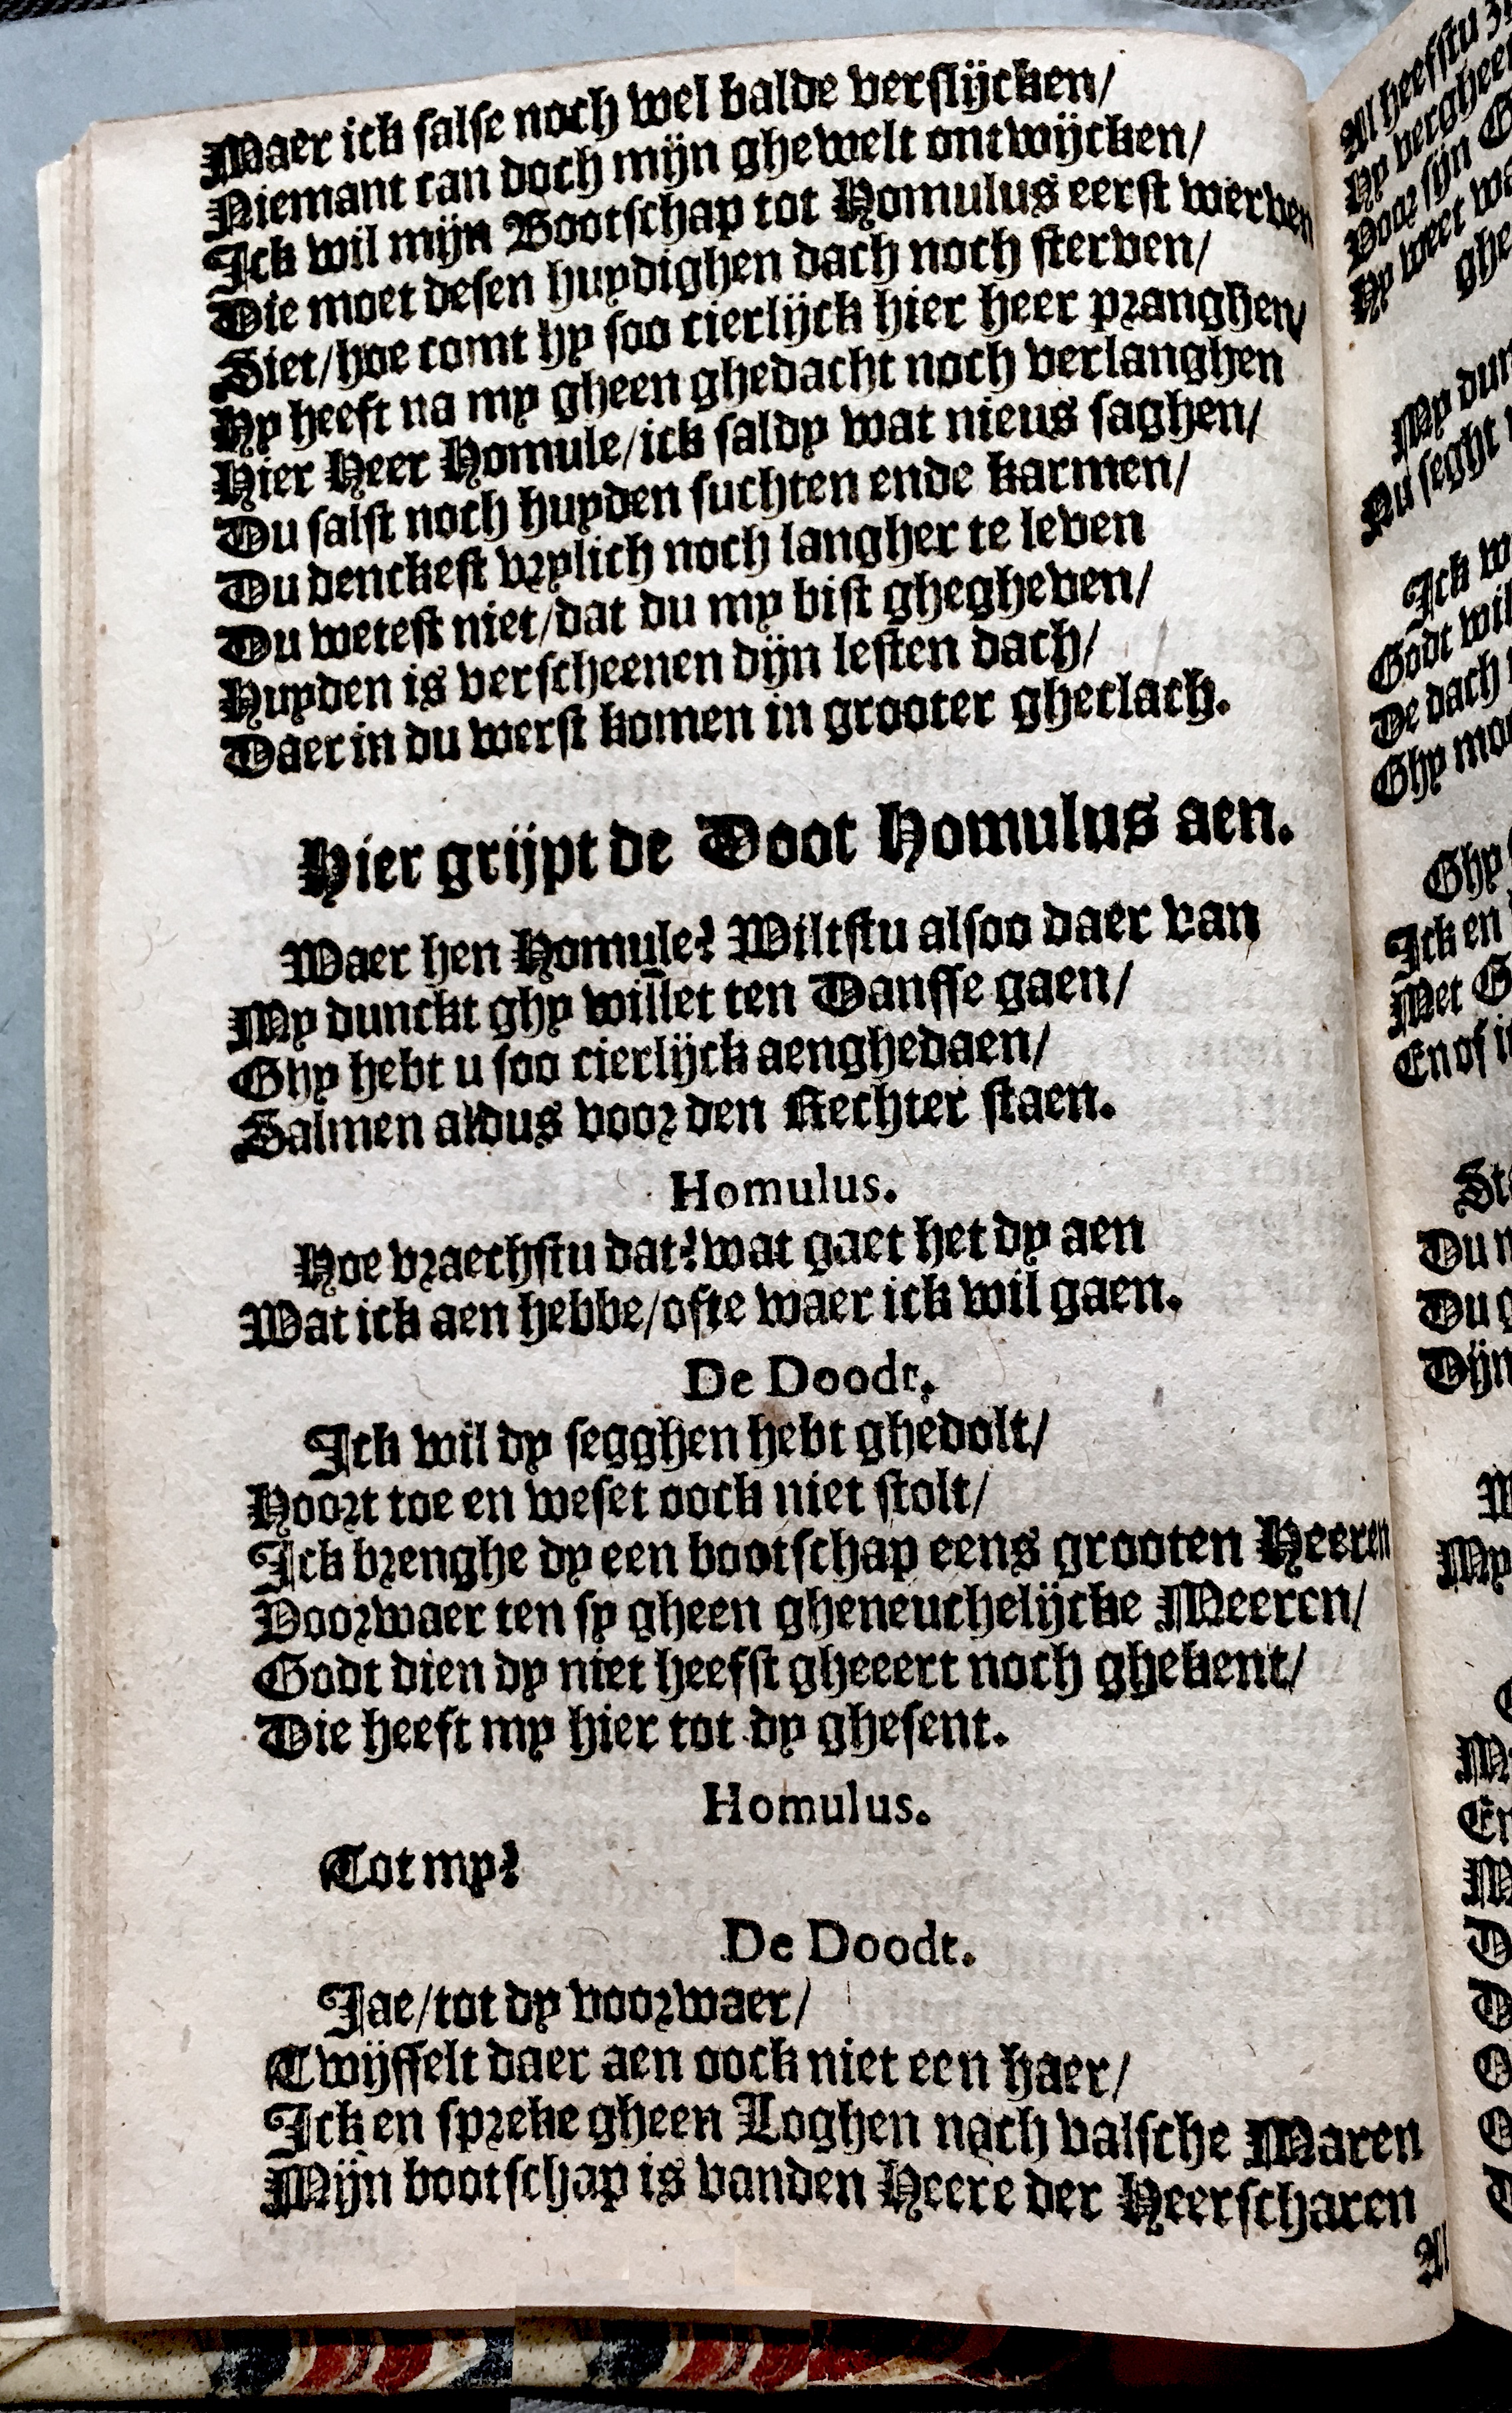 Maer ick salse noch wel balde verslijcken/
Niemant can doch mijn ghewelt ontwijcken/
Ick wil mijn Bootschap tot Homulus eerst werven
Die moet desen huydighen dach noch sterven/
Siet/hoe comt hy soo cierlijck hier heer pranghen/
Hy heeft na my gheen ghedacht noch verlanghen
Hier Heer Homule/ick saldy wat nieus saghen/
Du salst noch huyden suchten ende karmen/
Du denckest vrylich noch langher te leven
Du wetest niet/dat du my bist ghegheven/
Huyden is verscheenen dijn lesten dach/
Daer in du werst komen in grooter ghetlach.
Hier grijpt de Doot Homulus aen.
Waer hen Homule? Wiltstu alsoo daer van
My dunckt ghy willet ten Dansse gaen/
Ghy hebt u soo cierlijck aenghedaen/
Salmen aldus voor den Rechter staen.
Homulus.
Hoe vraechstu dat? wat gaet het dy aen
Wat ick aen hebbe/ofte waer ick wil gaen.
De Doodt.
Ick wil dy segghen hebt ghedolt/
Hoort toe en weset oock niet stolt/
Ick brenghe dy een bootschap eens grooten Heeren
Voorwaer ten sy gheen gheneuchelijcke Meeren/
Godt dien dy niet heefst gheeert noch ghekent/
Die heeft my hier tot dy ghesent.
Homulus.
Tot my?
De Doodt.
Jae/tot dy voorwaer/
Twijffelt daer aen oock niet een haer/
Ick en spreke gheen Loghen noch valsche Maren
Mijn bootschap is vanden Heere der Heerscharen
Al
Al heefstu
Hy
Voor sijn
Hy weet
My
Nu seght
Ick
Godt wil
De dach
Ghy
Ghy
Ick en
Met
En of
Du
Du
Dijn
My